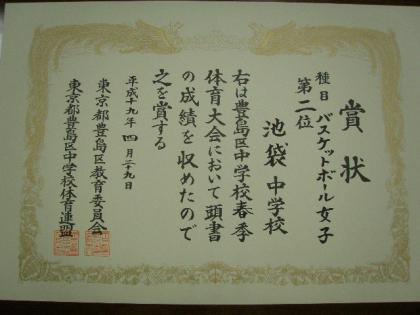 賞状
種目 バスケットボール女子
第二位
池袋中学校
右は豊島区中学校春季
体育大会において頭書
の成績を収めたので
之を賞する
平成十九年四月二十九日
東京都豊島区教育委員会
東京都豊島区中学校体育連盟